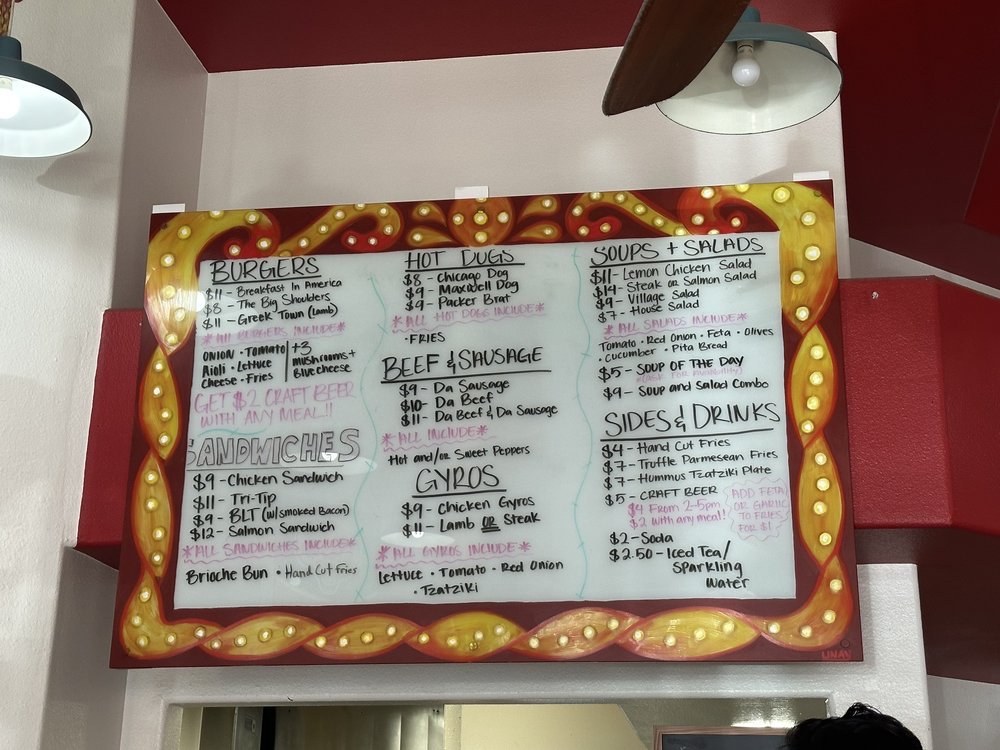 BURGERS
$11 - Breakfast In America
$8 - The Big Shoulders
$11 - Greek Town (Lamb)
*All BURGERS INCLUDE*
ONION · Tomato
Aioli · Lettuce
Cheese · Fries
+3
mushrooms +
Bluecheese
GET $2 CRAFT BEER
WITH ANY MEAL!!
SANDWICHES
$9 - Chicken Sandwich
$11 - Tri-Tip
$9 - BLT (w/smoked Bacon)
$12 - Salmon Sandwich
*ALL SANDWICHES INCLUDE*
Brioche Bun · Hand Cut Fries
HOT DOGS
$8 - Chicago Dog
$9 - Maxwell Dog
$9 - Packer Brat
*ALL HOT DOGS INCLUDE*
· FRIES
BEEF & SAUSAGE
$9 - Da Sausage
$10 - Da Beef
$11 - Da Beef & Da Sausage
*ALL INCLUDE*
Hot and/or Sweet Peppers
GYROS
$9 - Chicken Gyros
$11 - Lamb OR Steak
*ALL GYROS INCLUDE*
Lettuce · Tomato · Red Onion
· Tzatziki
SOUPS + SALADS
$11 - Lemon Chicken Salad
$14 - Steak or Salmon Salad
$9 - Village Salad
$7 - House Salad
*ALL SALADS INCLUDE*
Tomato · Red Onion · Feta · Olives
· Cucumber · Pita Bread
$5 - SOUP OF THE DAY
(ASK FOR AVAILABILITY)
$9 - Soup and Salad Combo
SIDES & DRINKS
$4 - Hand Cut Fries
$7 - Truffle Parmesean Fries
$7 - Hummus Tzatziki Plate
$5 - CRAFT BEER
$4 From 2-5pm
$2 with any meal!
ADD FETA
OR GARLIC
TO FRIES
FOR $1
$2 - Soda
$2.50 - Iced Tea/
Sparkling
Water